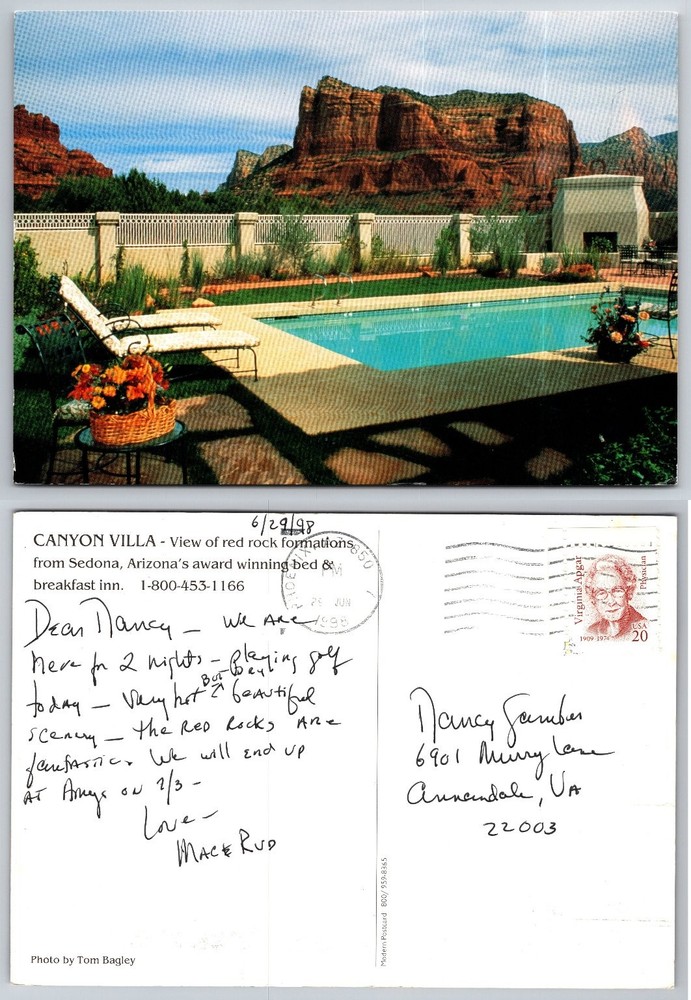 6/29/98
CANYON VILLA - View of red rock formations
from Sedona, Arizona's award winning bed &
breakfast inn. 1-800-453-1166
PHOENIX 850
PM
29 JUN
1998
Dear Nancy - We Are
here for 2 nights - Playing golf
today - Very hot But Dry! beautiful
scenery - the Red Rocks Are
fantastic. We will end up
At on 7/3 -
Love -
Mac & Rud
Photo by Tom Bagley
Modern Postcard 800/959-8365
Virginia Apgar
Physician
1909-1974
USA
20
Nancy
6901 Murry Lane
Annandale, VA
22003